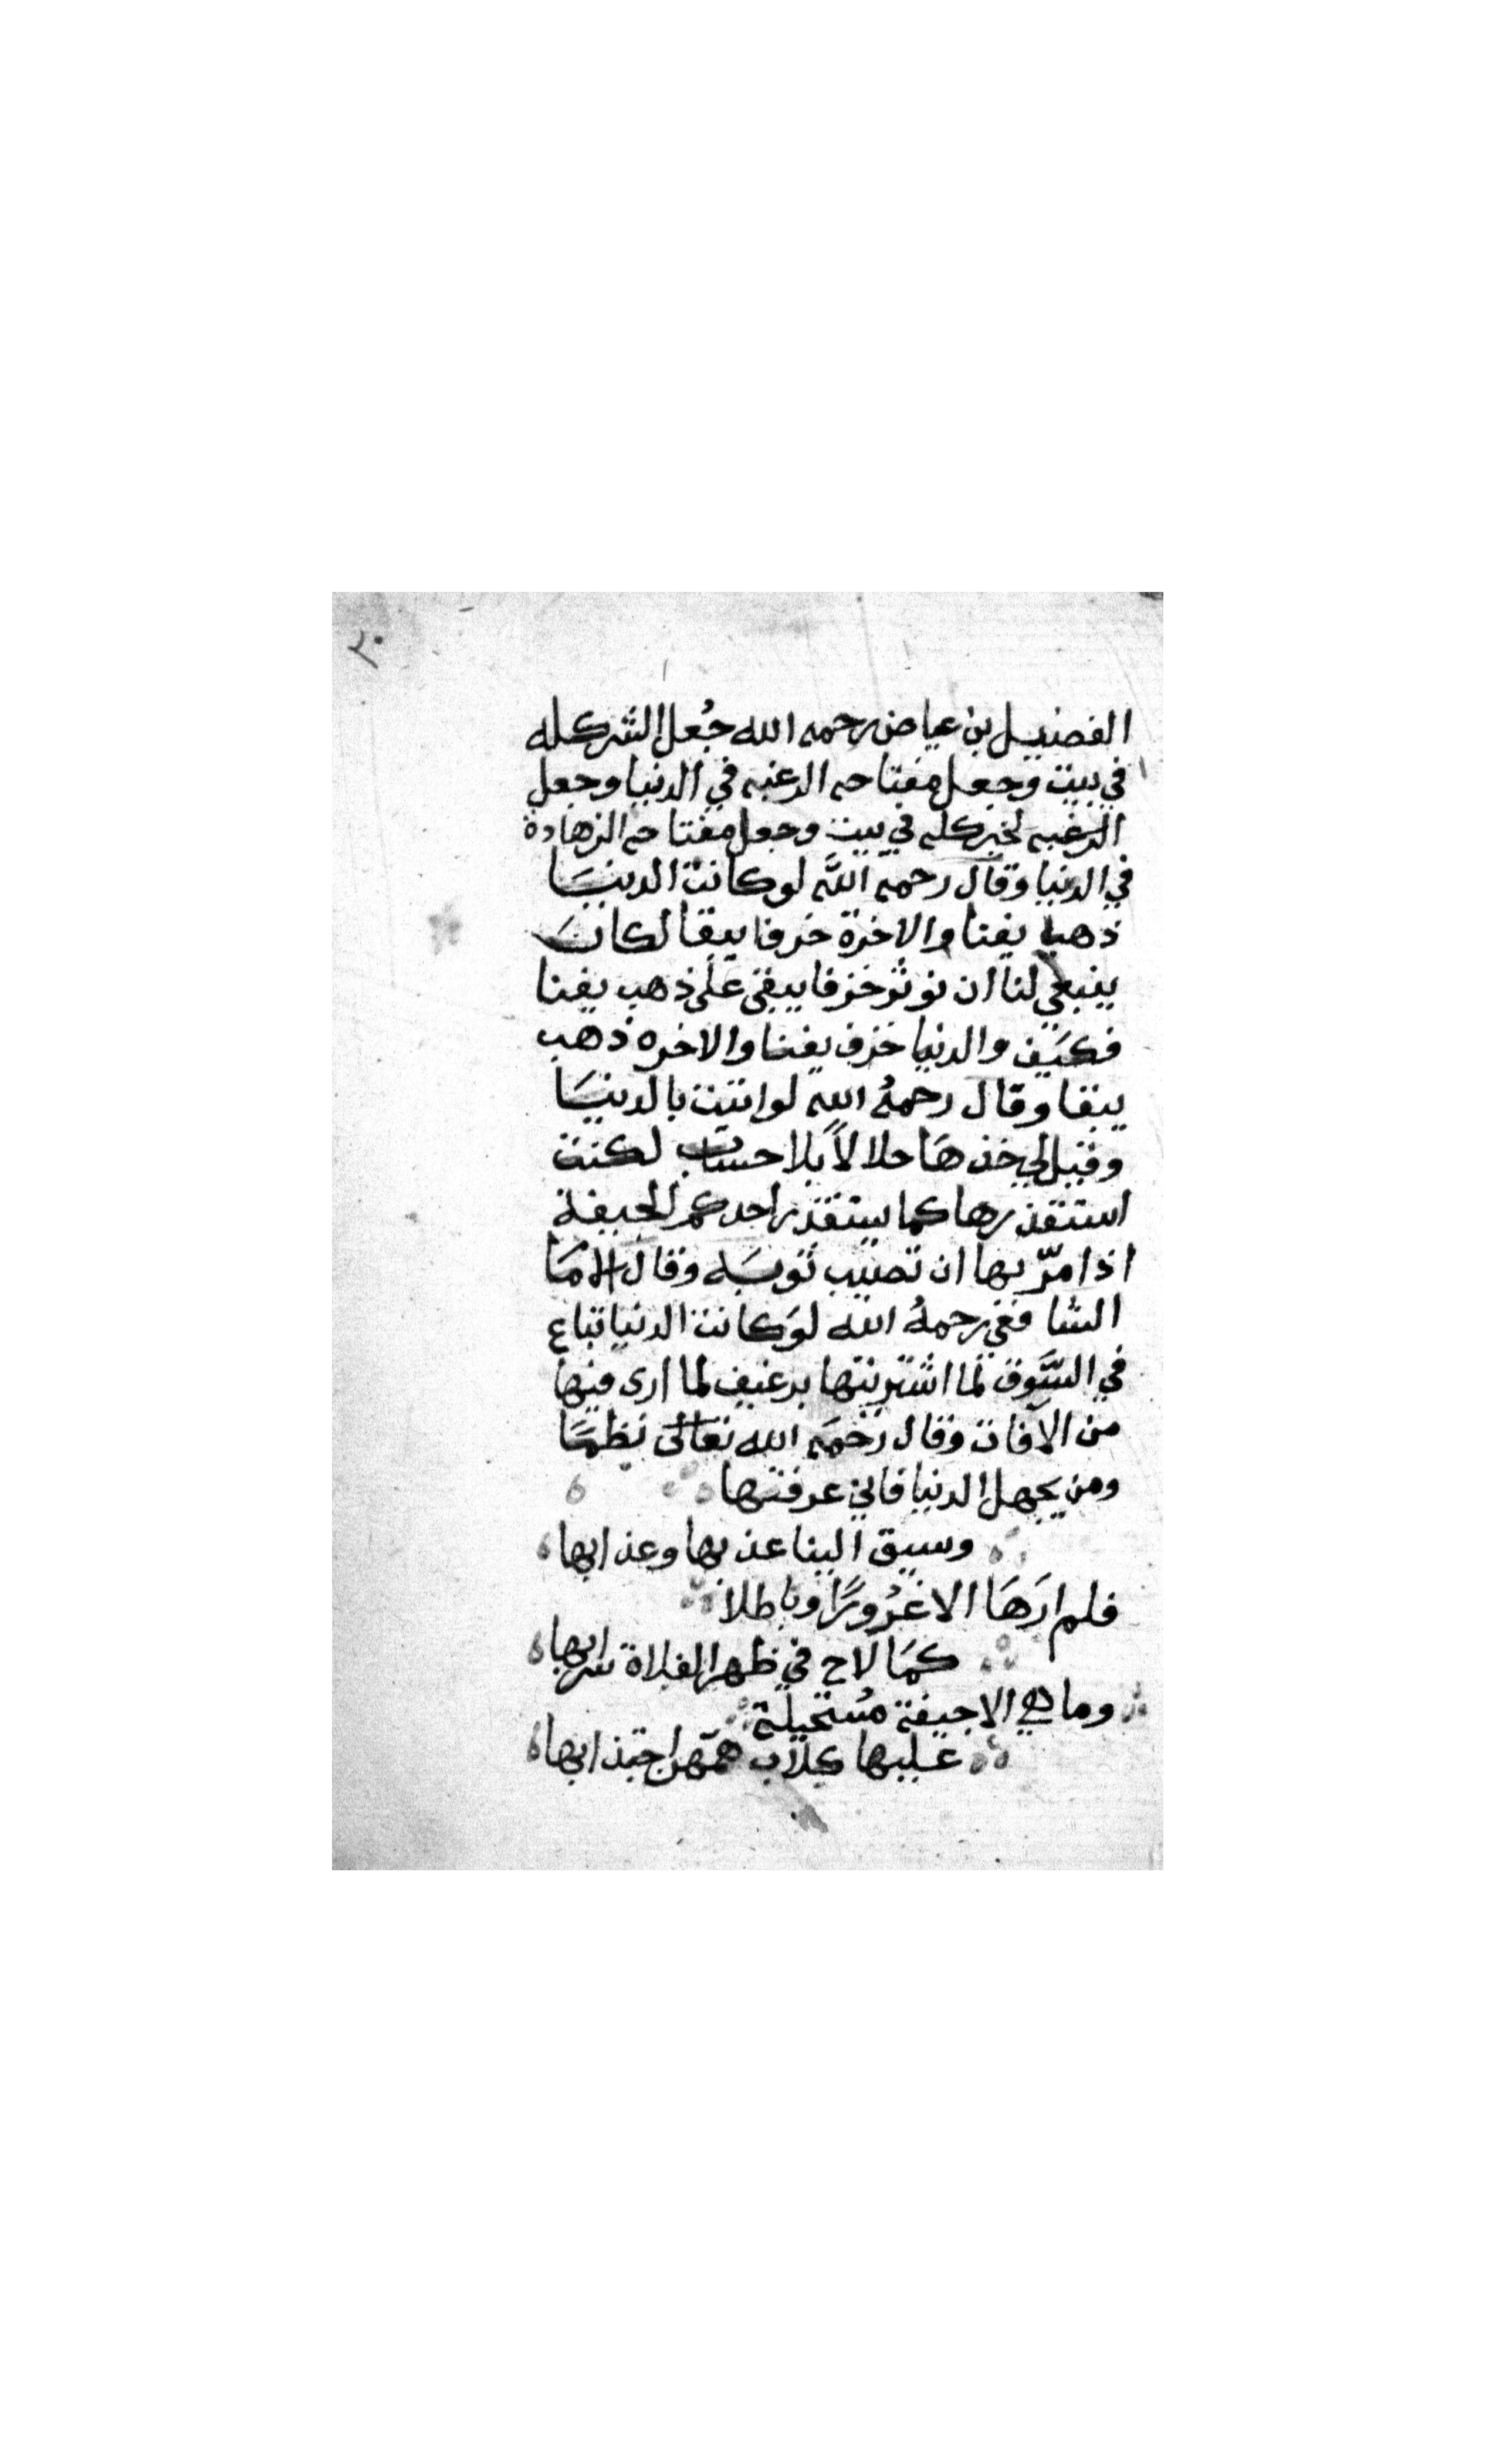 ٢٠
الفضيل بن عياض رحمه الله جُعل الشر كله
في بيت وجعل مفتاحه الرغبه في الدنيا وجعل
الرغبه لخير كله في بيت وجعل مفتاحه الزهادة
في الدنيا وقال رحمه اللَّه لو كانت الدنيَا
ذهبا يفنا والاخرة خزفا يبقا لكانَ
ينبغي لنا ان نوثر خزفا يبقى على ذهب يفنا
فكيَف والدنيا خزف يفنا والاخره ذهب
يبقا وقال رحمهُ الله لو اتيت بالدنيَا
وقيل لي خذهَا حلالاً بلا حساب لكنت
استقذرها كما يستقذر احدكم الجيفة
اذا مرّ بها ان تصيب ثوبَه وقال الامَا
الشافعي رحمهُ الله لوَكانت الدنيا تباع
في السَّوق لما اشتريتها برغيف لما ارى فيها
من الآفات وقال رحمَه الله تعالى نظمًا
ومن يجهل الدنيا فاني عرفتها
وسيق الينا عذبها وعذابها
فلم ارَهَا الا غرُورًا وباطلا
كمَا لاح في ظهر الفلاة سرابها
وما هي الا جيفة مُستحيلة
عليها كلاب همّهن اجتذابها